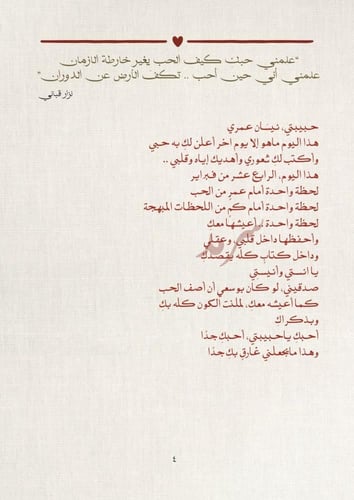 "علمني حبك كيف الحب يغير خارطة الأزمان
علمني أني حين أحب .. تكف الأرض عن الدوران"
نزار قباني
حبيبتي، نيسان عمري
هذا اليوم ماهو إلا يوم آخر أعلن لكِ به حبي
وأكتب لك شعوري وأهديك إياه وقلبي ..
هذا اليوم، الرابع عشر من فبراير
لحظة واحدة أمام عمرٍ من الحب
لحظة واحدة أمام كم من اللحظات المبهجة
لحظة واحدة، أعيشها معكِ
وأحفظها داخل قلبي، وعقلي
وداخل كتاب كله يقصدك
يا انستي وأنيستي
صدقيني، لو كان بوسعي أن أصف الحب
كما أعيشه معكِ، لملئت الكون كله بكِ
وبذكراك
أحبكِ ياحبيبتي، أحبكِ جدًا
وهذا مايجعلني غارق بكِ جدًا
٤